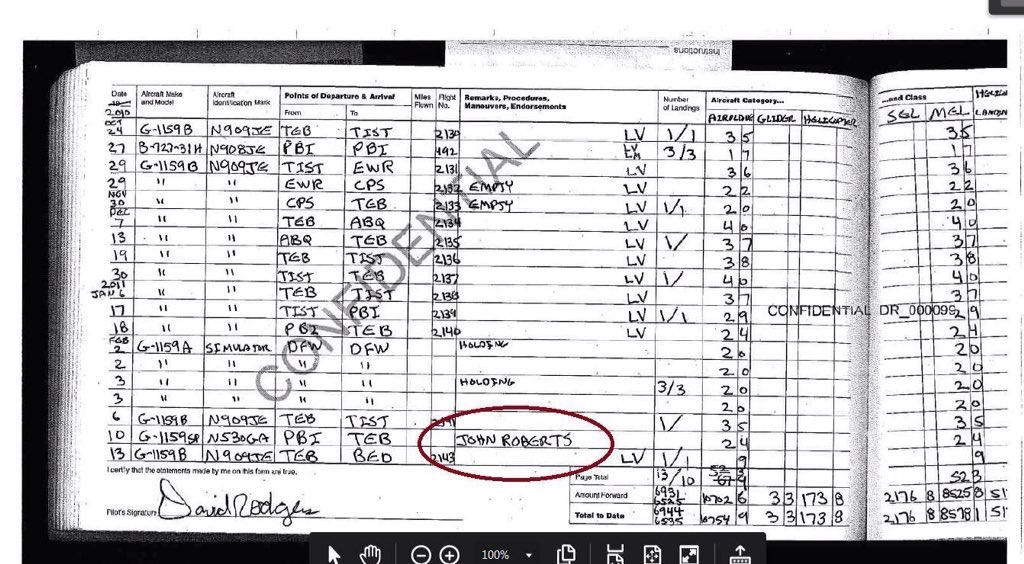 Instructions
Date Aircraft Make and Model Aircraft Identification Mark Points of Departure & Arrival From To Miles Flown Flight No. Remarks, Procedures, Maneuvers, Endorsements Number of Landings Aircraft Category... AIRPLANE GLIDER HELICOPTER ...and Class SEL MEL
2010
OCT
24 G-1159B N909JE TEB TIST 2130 LV 1/1 3 5 35
27 B-727-31H N908JE PBI PBI 492 LV LM 3/3 1 7 17
29 G-1159B N909JE TIST EWR 2131 LV 3 6 36
29 " " EWR CPS 2132 EMPTY LV 2 2 22
NOV
30 " " CPS TEB 2133 EMPTY LV 1/1 2 0 20
DEC
7 " " TEB ABQ 2134 LV 4 0 40
13 " " ABQ TEB 2135 LV 1/ 3 7 37
19 " " TEB TIST 2136 LV 3 8 38
30 " " TIST TEB 2137 LV 1/ 4 0 40
2011
JAN 6 " " TEB TIST 2138 LV 3 7 37
17 " " TIST PBI 2139 LV 1/1 2 9 29
18 " " PBI TEB 2140 LV 2 4 24
FEB
2 G-1159A SIMULATOR DFW DFW HOLDING 2 0 20
2 " " " " 2 0 20
3 " " " " HOLDING 3/3 2 0 20
3 " " " " 2 0 20
6 G-1159B N909JE TEB TIST 1/ 3 5 35
10 G-1159SP N530GA PBI TEB JOHN ROBERTS 2 4 24
13 G-1159B N909JE TEB BED 2143 LV 1/1 9 9
CONFIDENTIAL
CONFIDENTIAL DR_000099
I certify that the statements made by me on this form are true.
Pilot's Signature David Rodgers
Page Total 13/10 523
Amount Forward 6931 6525 10702 6 3 3 173 8 2176 8 8525 8 51
Total to Date 6944 6535 10754 9 3 3 173 8 2176 8 8578 1 51
100%